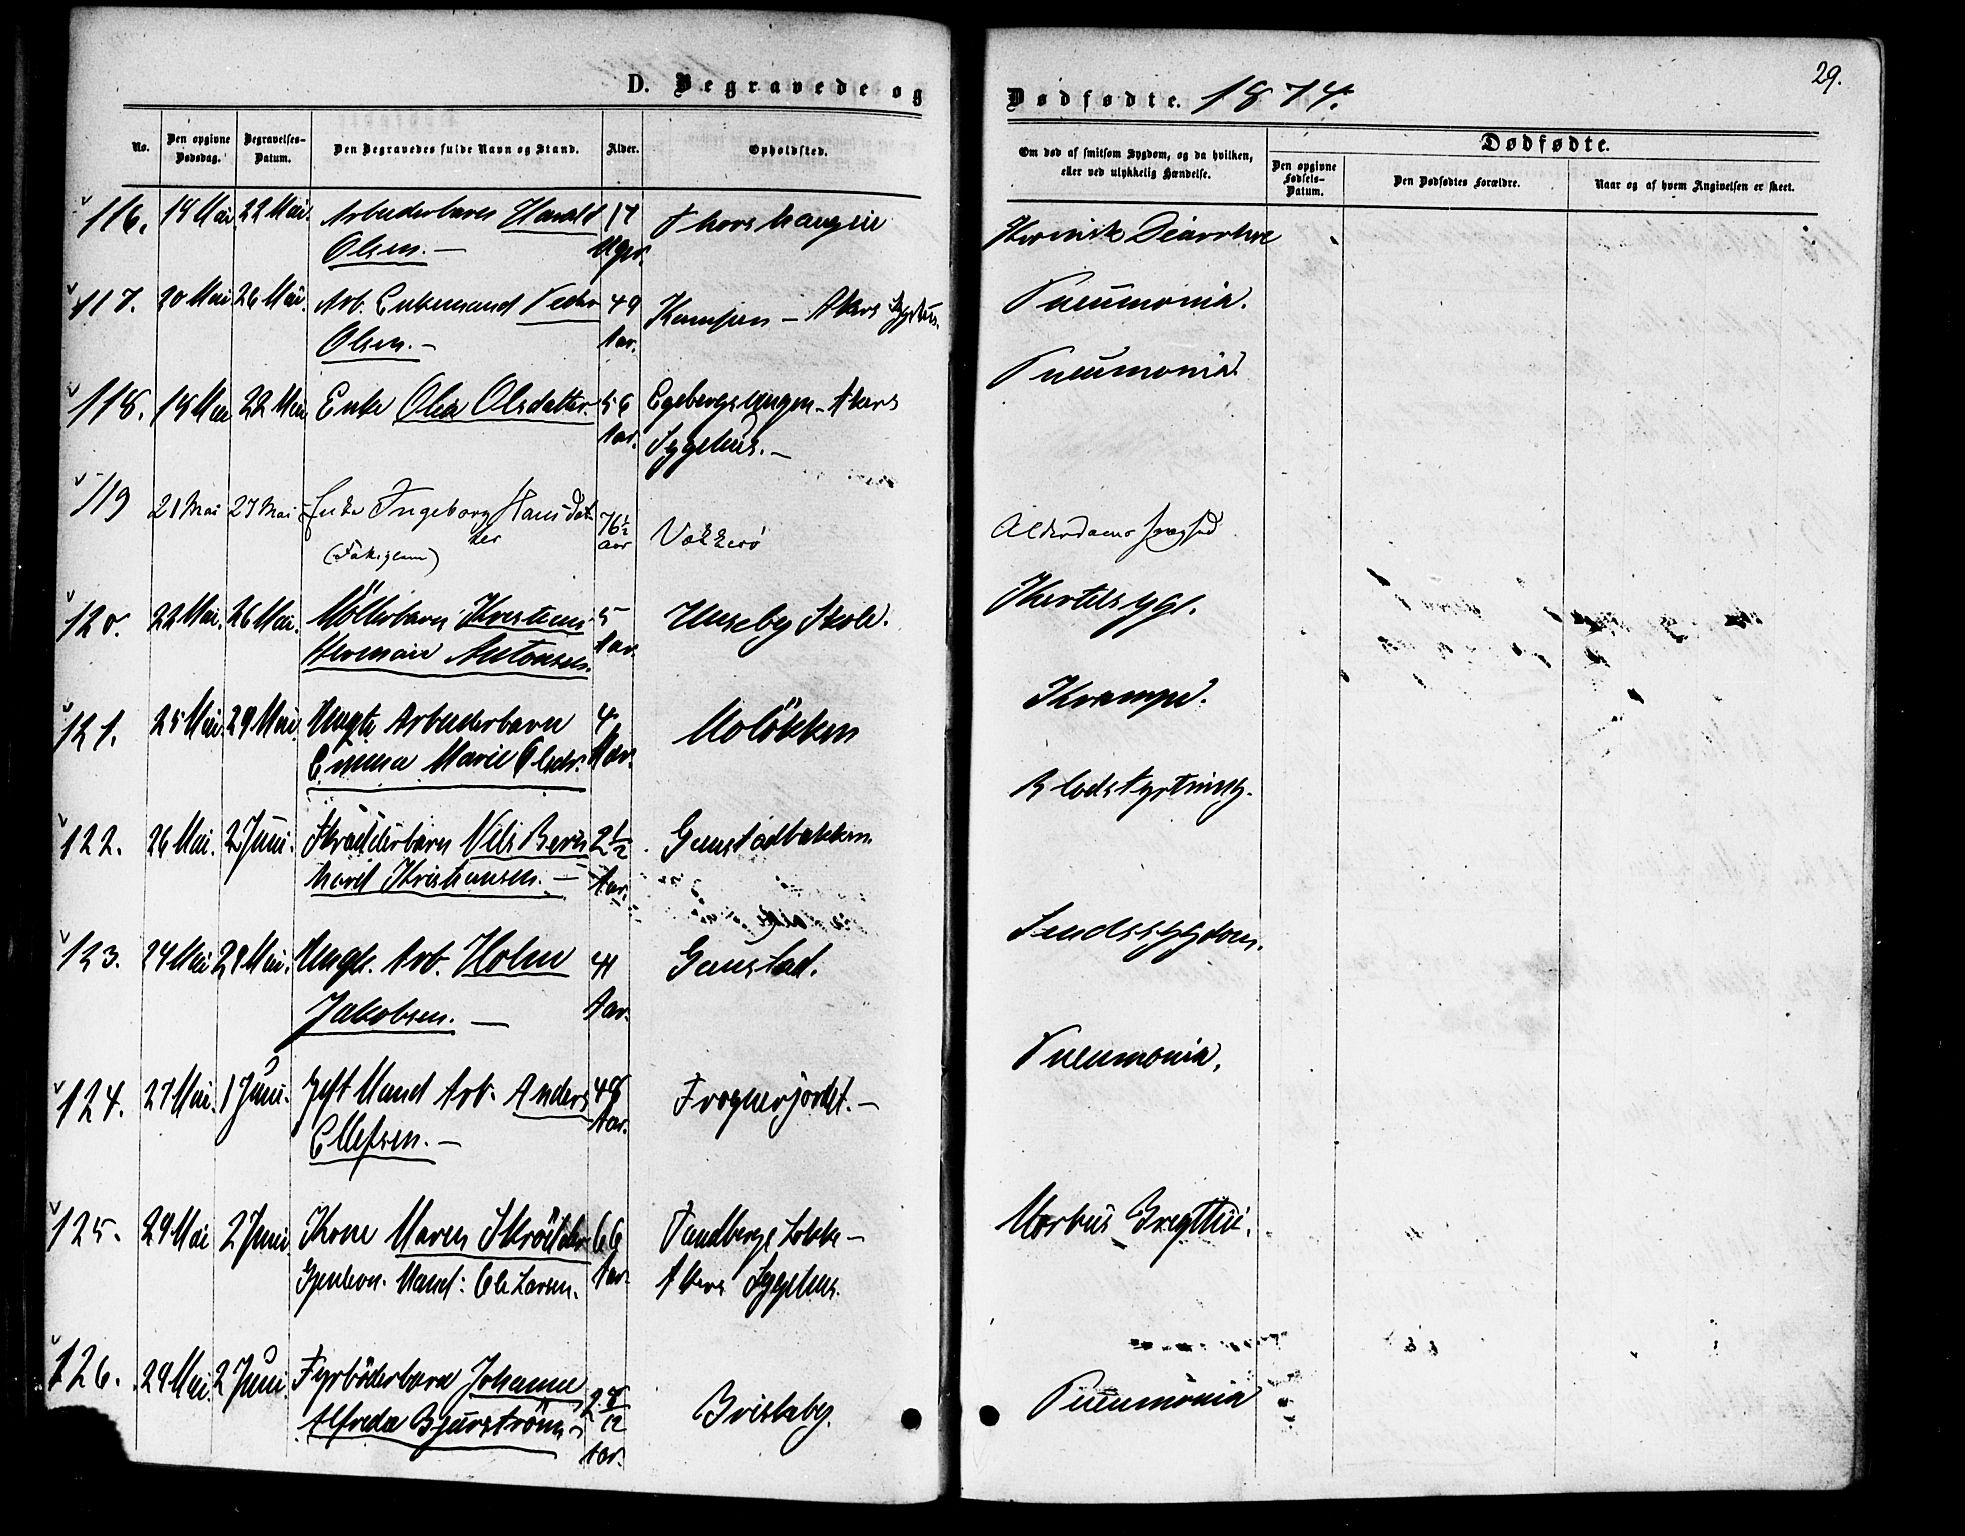 D. Begravede og
Dødfødte. 1874.
29.
No.
Den opgivne Dødsdag.
Begravelses-Datum.
Den Begravedes fulde Navn og Stand.
Alder.
Opholdsted.
Om død af smitsom Sygdom, og da hvilken, eller ved ulykkelig Hændelse.
Dødfødte.
Den opgivne Fødsels-Datum.
Den Dødfødtes Forældre.
Naar og af hvem Angivelsen er skeet.
116. 19 Mai 22 Mai. Arbeiderbarn Harald 17 Thorshaugen Kronisk Diarrhoe
Olsen. — Uger.
117. 20 Mai 26 Mai. Arb. Enkemand Peder 49 Kampen – Akers Sygehus. Pneumonia.
Olsen. — Aar.
118. 19 Mai 22 Mai Enke Olea Olsdatter 56 Egebergs – Akers Pneumonia
Aar. Sygehus. —
119 21 Mai 27 Mai Enke Ingeborg Hansdat 76½ Vækkerø Alderdoms
ter aar
120. 22 Mai. 26 Mai. Möllerbarn Kristian 5 Huseby Skole. Kertelsyge.
Herman Antonsen. Aar.
121. 25 Mai 29 Mai. Uægte Arbeiderbarn 4 Moløkken Krampe.
Emma Marie Olsdr. Aar.
122. 26 Mai. 2 Juni. Skrædderbarn Nils Bern 2½ Gaustadbakken. Blodstyrtning.
hard Kristiansen. — Aar.
123. 24 Mai 29 Mai. Ungk. Arb. Holm 41 Gaustad. Sindssygdom.
Jakobsen. — Aar.
124. 27 Mai. 1 Juni. Gift Mand Arb. Anders 49 Frognerjordet. — Pneumonia.
Ellefsen. — Aar.
125. 29 Mai 2 Juni Kone Maren Skröder 66 Sandbergs Løkke – Morbus Brigthii.
Mand: Ole Larsen. Aar. Akers Sygehus.
126. 29 Mai. 2 Juni Fyrböderbarn Johanne 2 8/12 Briskeby. Pneumonia
Alfreda Bjurström — Aar.